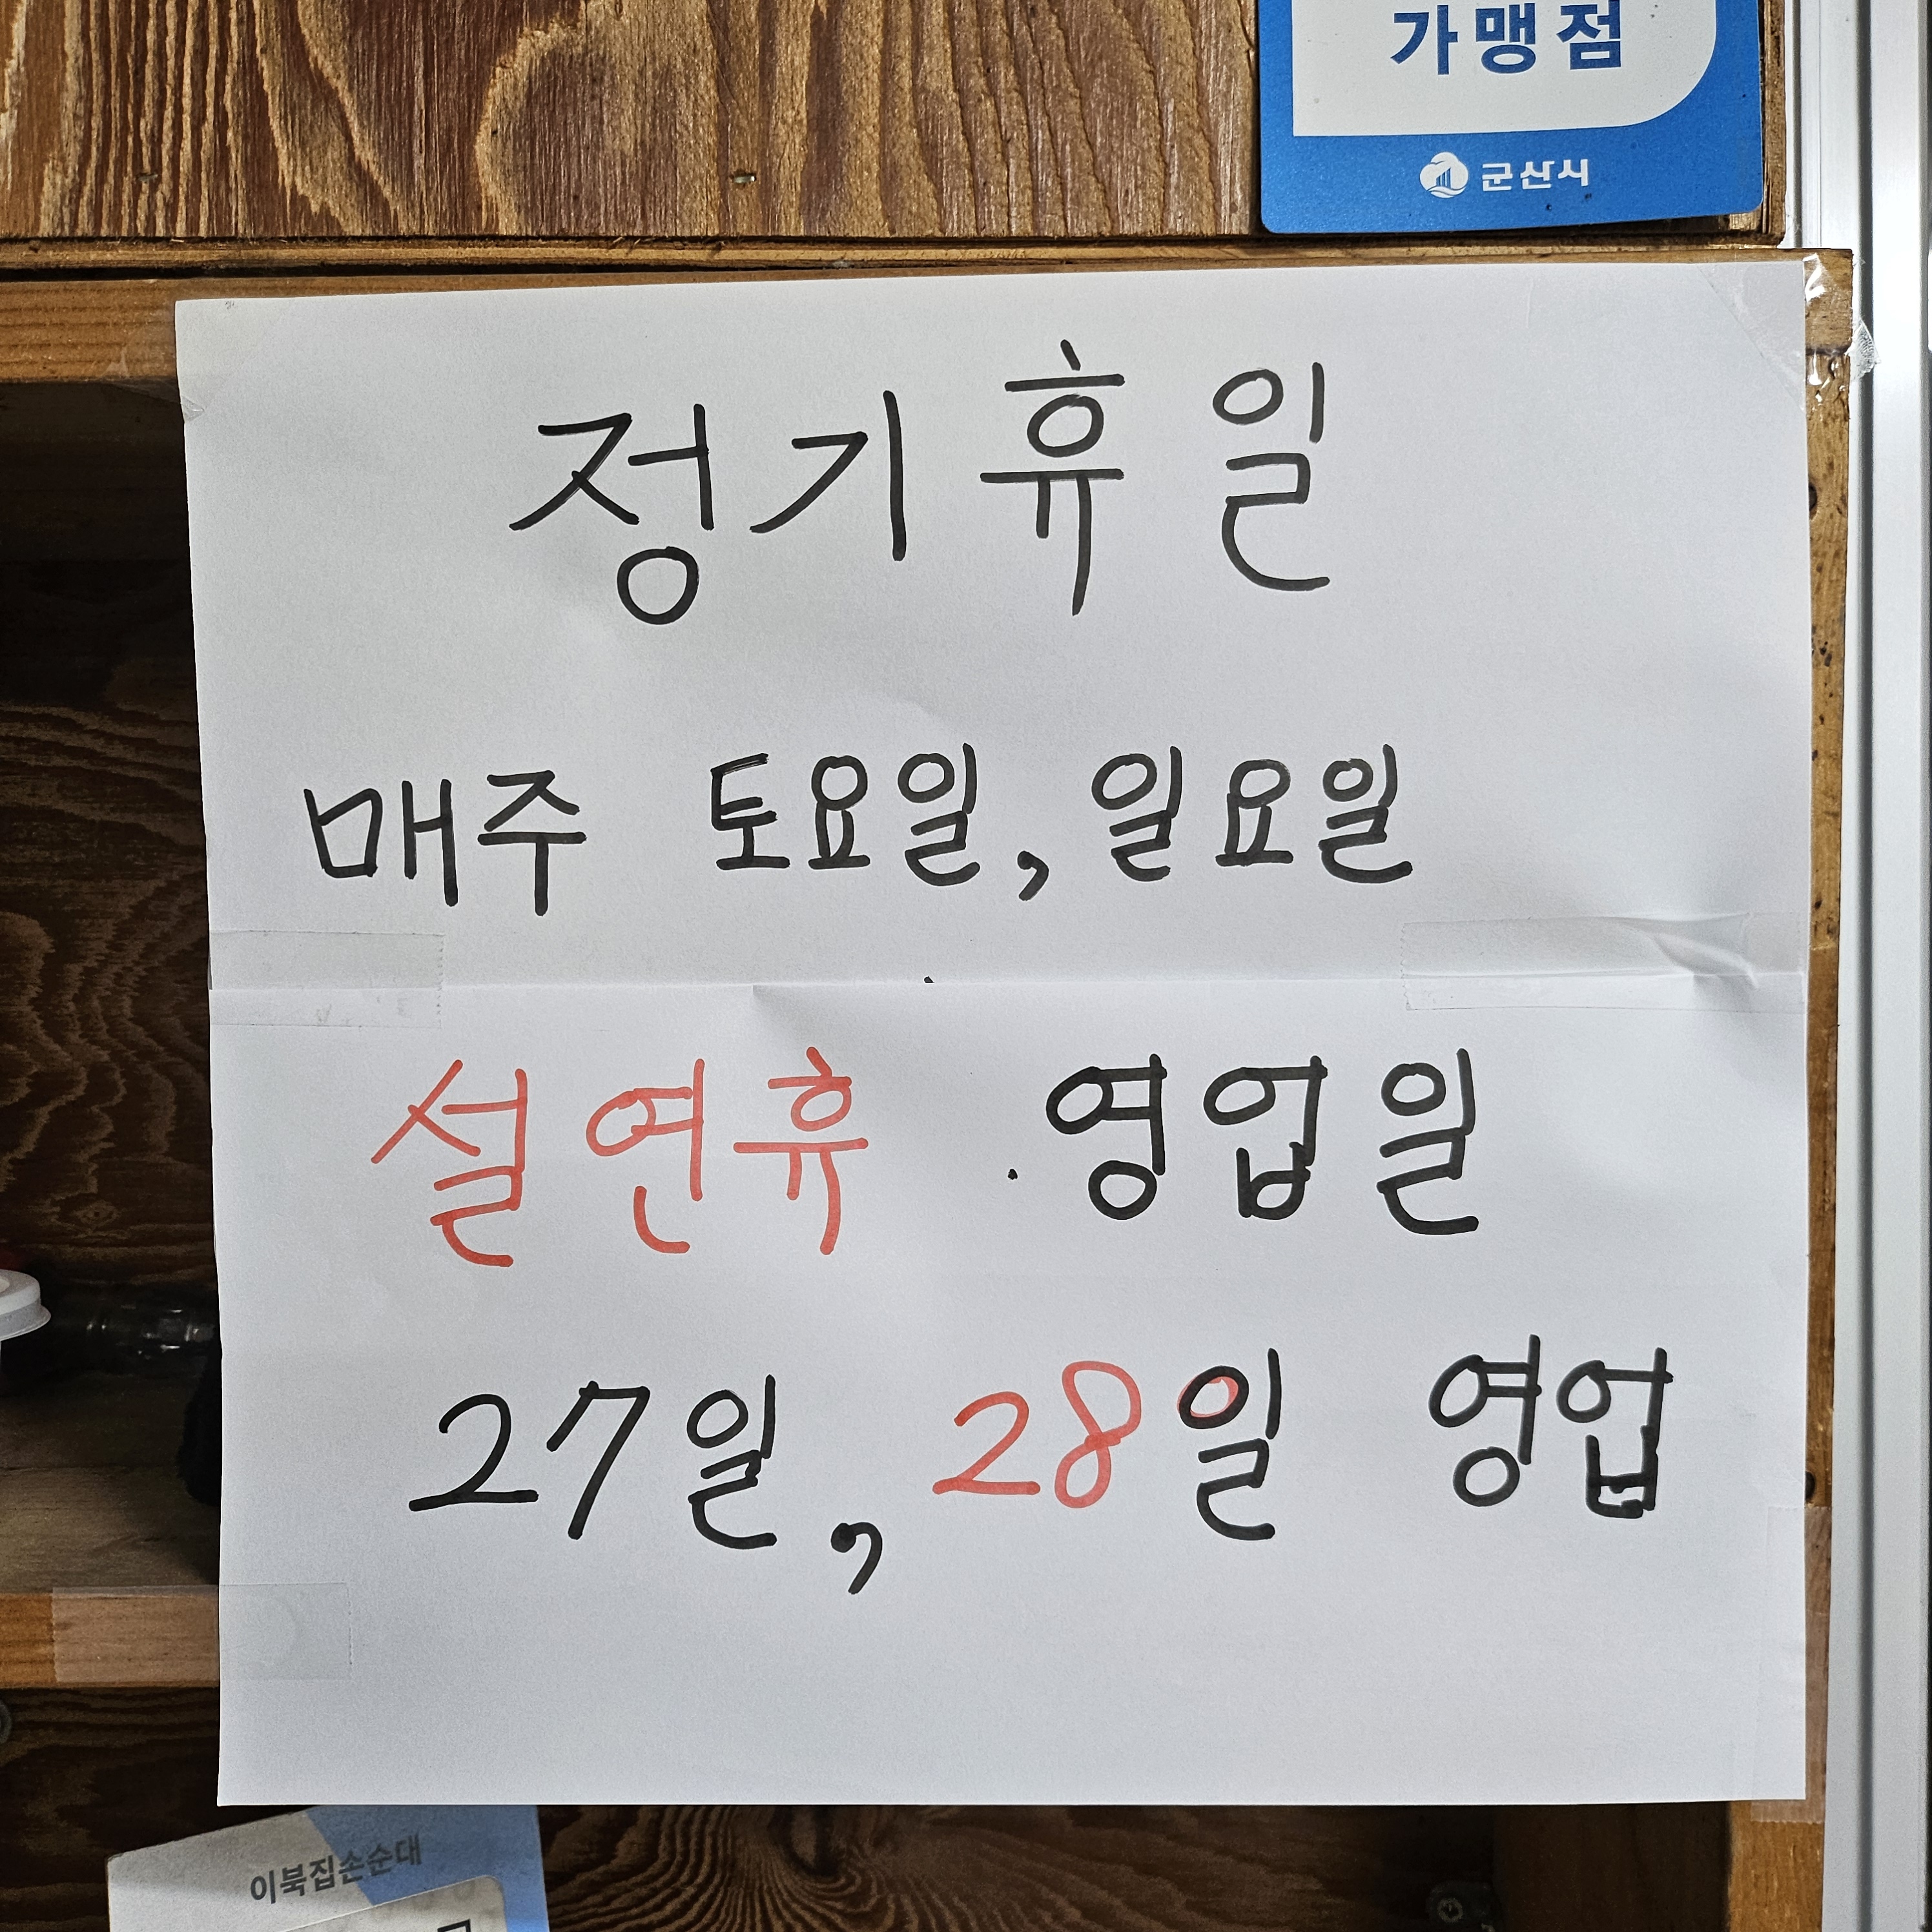 가맹점
군산시
정기휴일
매주 토요일, 일요일
설연휴 영업일
27일, 28일 영업
이북집손순대